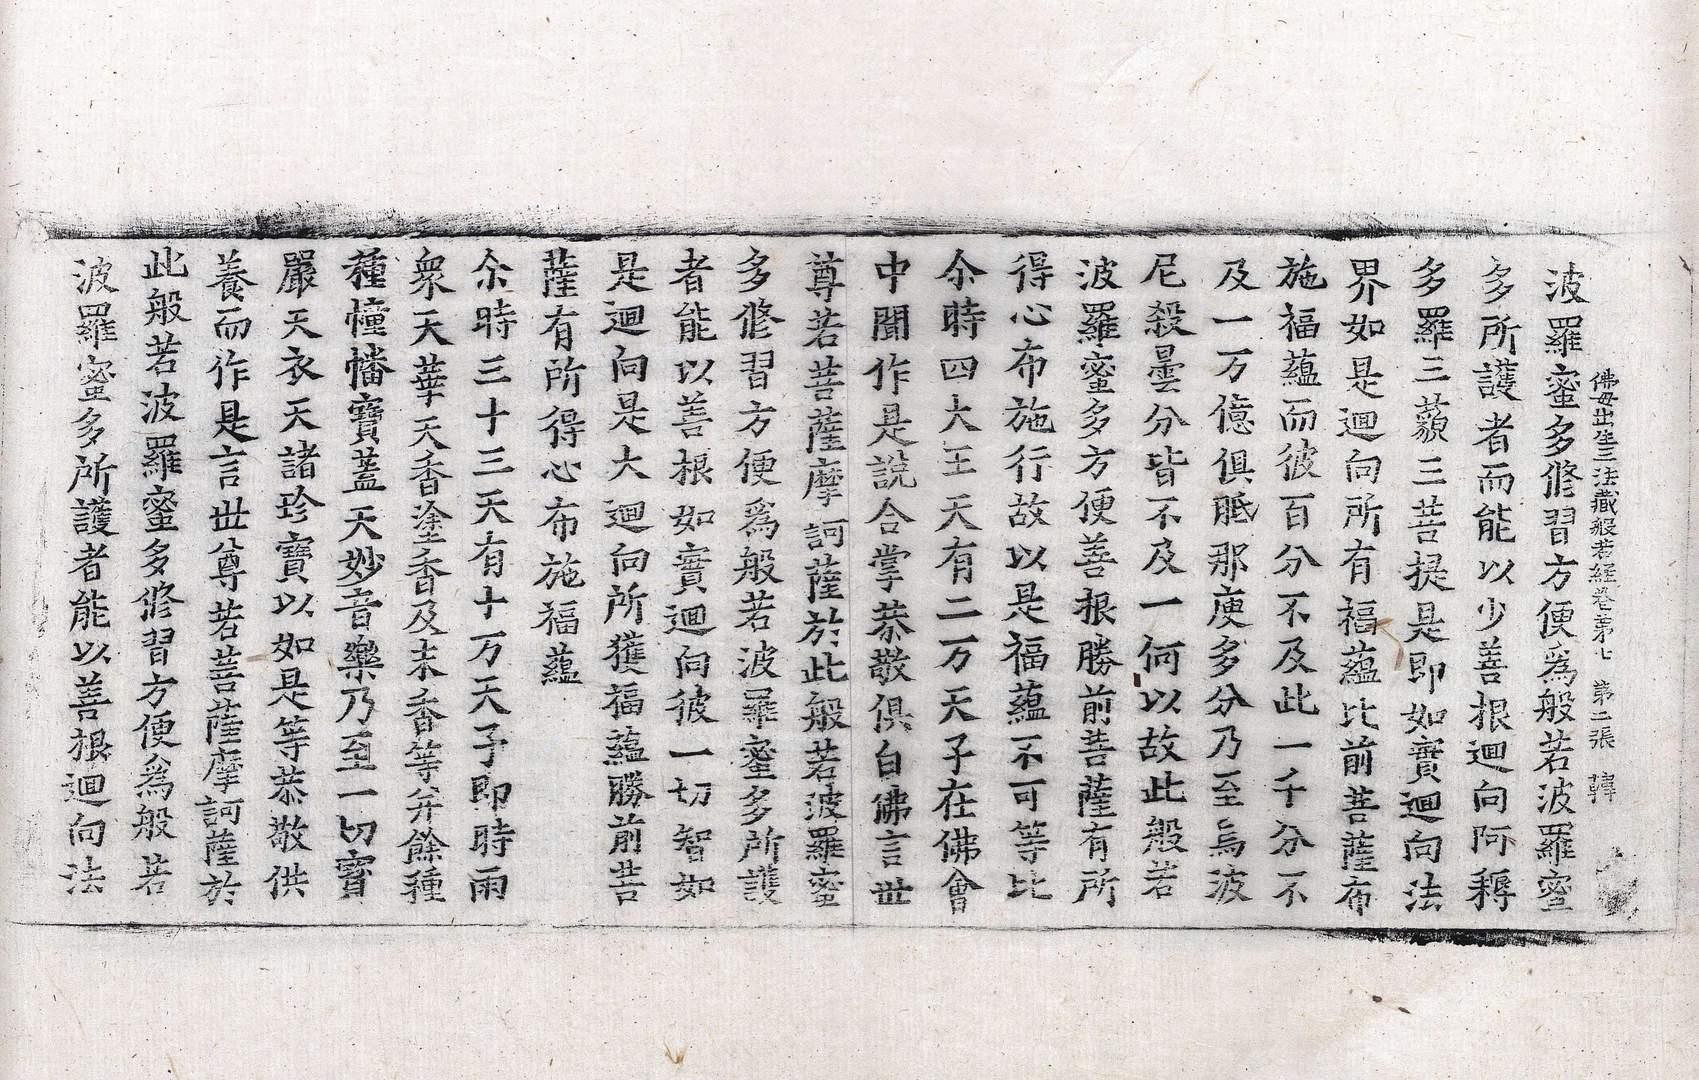 佛母出生三法藏般若經卷第七　第二張　韓
波羅蜜多修習方便爲般若波羅蜜
多所護者而能以少善根迴向阿耨
多羅三藐三菩提是即如實迴向法
界如是迴向所有福蘊比前菩薩布
施福蘊而彼百分不及此一千分不
及一万億俱胝那庾多分乃至烏波
尼殺曇分皆不及一何以故此般若
波羅蜜多方便善根勝前菩薩有所
得心布施行故以是福蘊不可等比
尒時四大王天有二万天子在佛會
中聞作是說合掌恭敬俱白佛言世
尊若菩薩摩訶薩於此般若波羅蜜
多修習方便爲般若波羅蜜多所護
者能以善根如實迴向彼一切智如
是迴向是大迴向所獲福蘊勝前菩
薩有所得心布施福蘊
尒時三十三天有十万天子即時雨
衆天華天香塗香及末香等并餘種
種幢幡寶蓋天妙音樂乃至一切寶
嚴天衣天諸珍寶以如是等恭敬供
養而作是言世尊若菩薩摩訶薩於
此般若波羅蜜多修習方便爲般若
波羅蜜多所護者能以善根迴向法